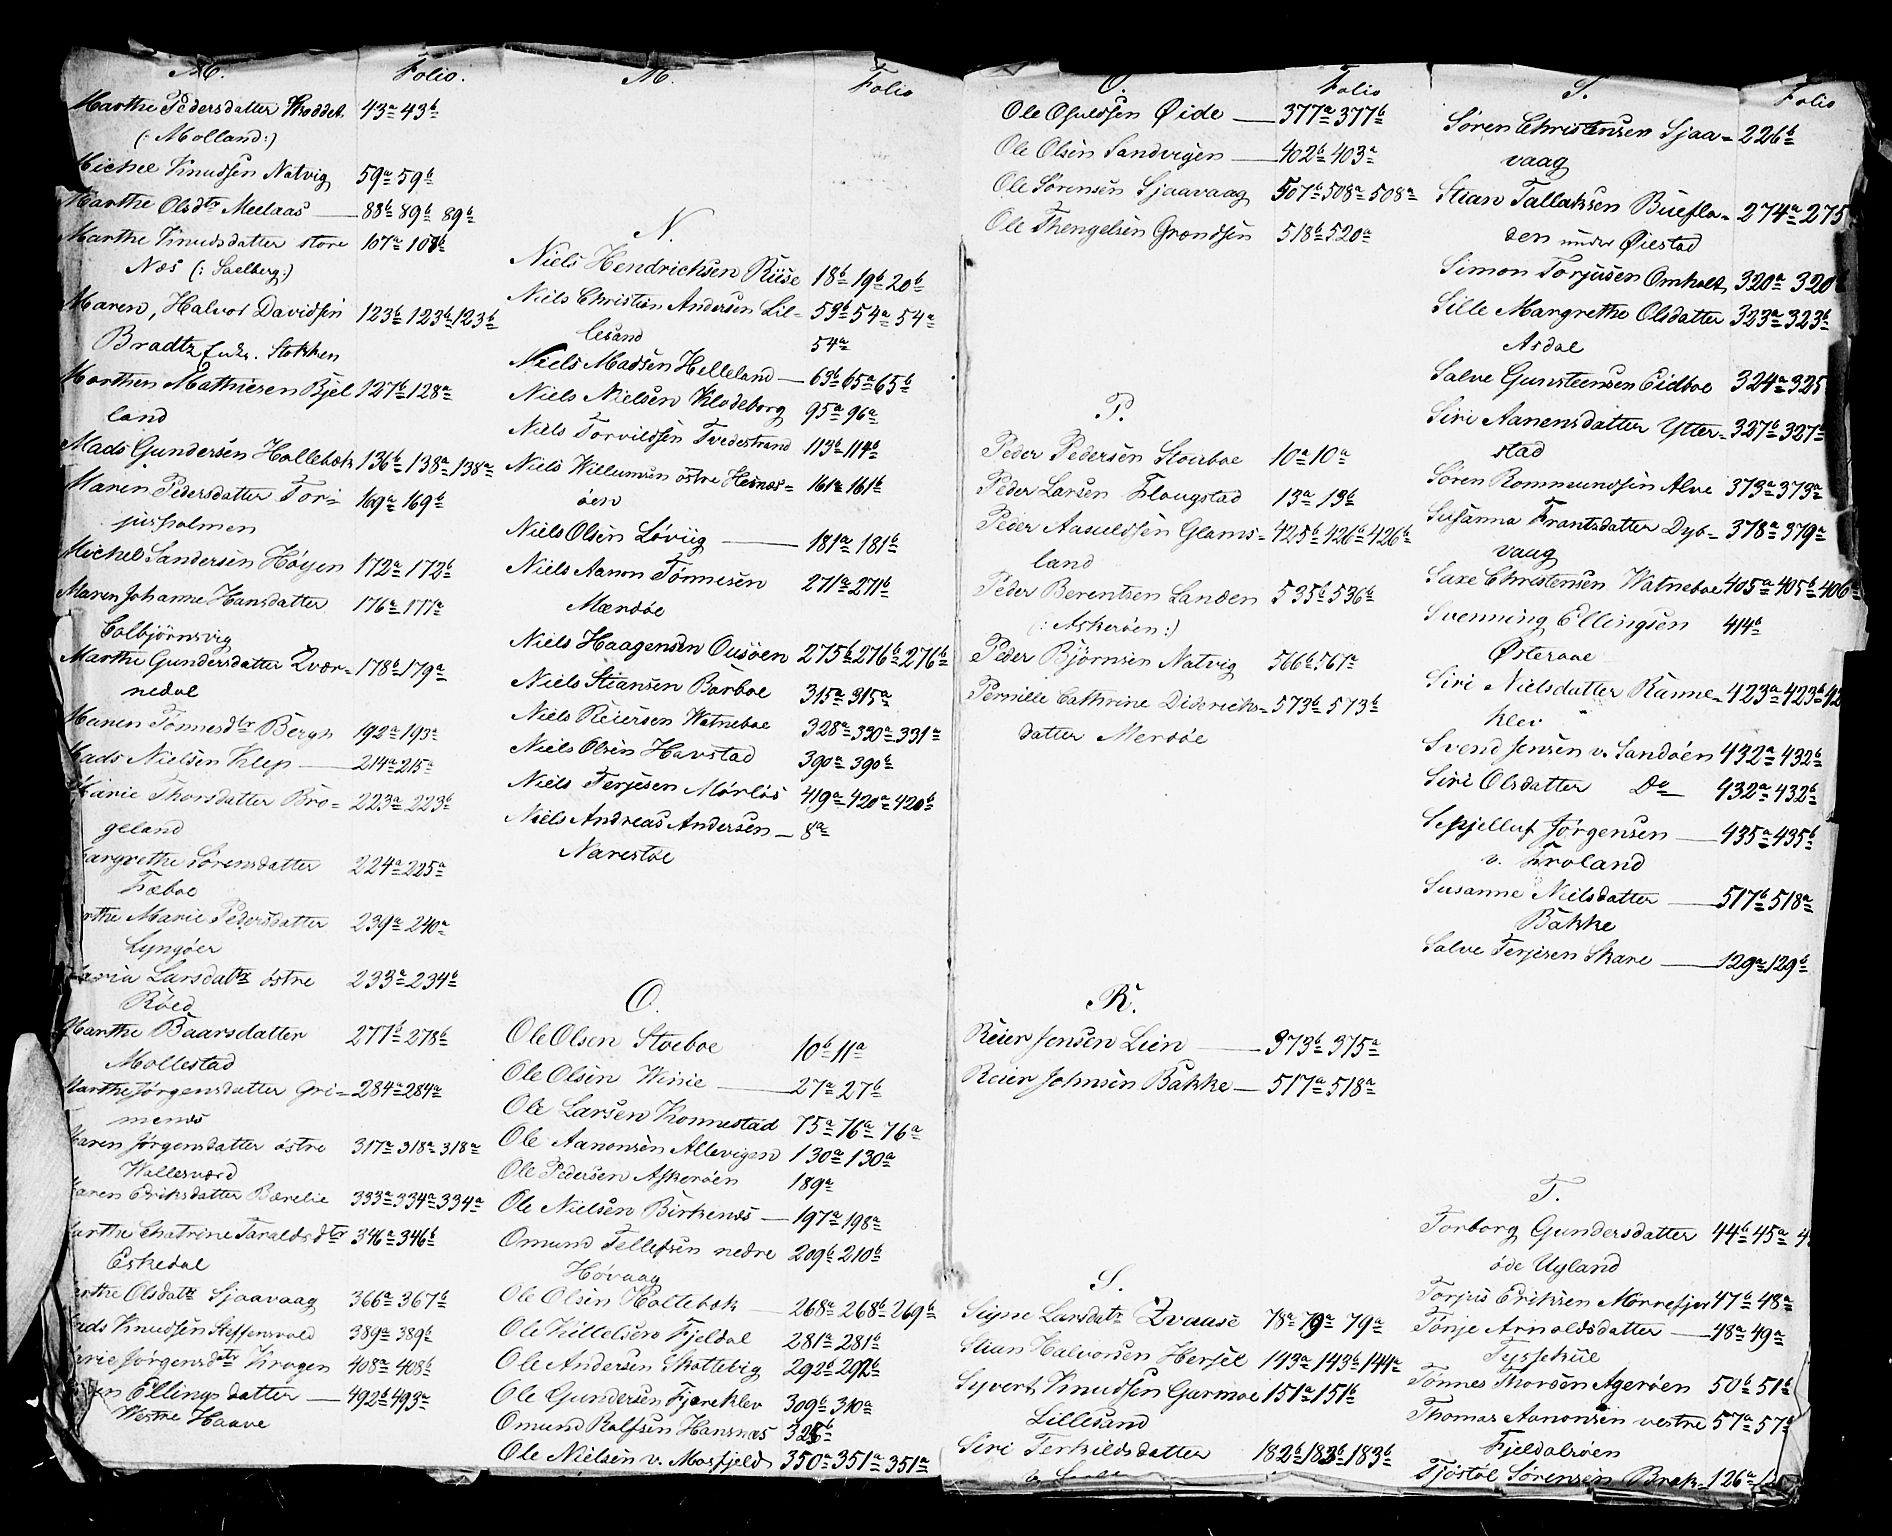 M. Folio.
Marthe Pedersdatter Kroddet. 43a 43b
(: Molland:)
Michel Knudsen Natvig 59a 59b
Marthe Olsdtr Meelaas 88b 89b 89b
Marthe Knudsdatter store 107a 108b
Næs (: Saelberg:)
Maren, Halvor Davidsen 123b 123b 123b
Bradtz Enke. Stokken
Morthen Mathiesen Bjel 127b 128a
land
Mads Gundersen Hollebæk 136b 138a 138a
Maren Pedersdatter Tor- 169a 169b
jusholmen
Michel Sandersen Høgen 172a 172b
Maren Johanne Hansdatter 176a 177a
Colbjørnsvig
Marthe Gundersdatter Tvær- 178b 179a
nedal
Maren Tønnesdtr Bergh 192a 193a
Mads Nielsen Klep 214a 215a
Marie Thorsdatter Bro- 223a 223b
geland
Margrethe Sørensdatter 224a 225a
Fæboe
rthe Marie Pedersdatter 239a 240a
Lyngøer
Maria Larsdatr østre 233a 234b
Røed
Marthe Baarsdatter 277b 278b
Mollestad
Marthe Jørgensdatter Gri- 284a 284a
menes
Maren Jørgensdatter østre 317a 318a 318a
Wallesværd
Karen Eriksdatter Bærelie 333a 334a 334a
Marthe Chatrine Taraldsdtr 346a 346b
Eskedal
rthe Olsdatr Sjaavaag 366a 367b
ads Knudsen Steffensvold 389a 389b
arie Jørgensdtr Krogen 408a 408b
en Ellingsdatter 492b 493a
Westre Haave
M. Folio
N.
Niels Hendrichsen Riise 18b 19b 20b
Niels Christian Andersen Lil- 53b 54a 54a
lesand 54a
Niels Madsen Helleland 63b 65a 65b
Niels Nielsen Klodeborg 95a 96a
Niels Torvildsen Tvedestrand 113b 114b
Niels Willumsen østre Hesnes- 161a 161b
øen
Niels Olsen Løviig 181a 181b
Niels Aanon Tønnesen 271a 271b
Mærdøe
Niels Haagensen Ousøen 275b 276b 276b
Niels Stiansen Barboe 315a 315a
Niels Reiersen Watneboe 328a 330a 331a
Niels Olsen Havstad 390a 390b
Niels Terjesen Mørløs 419a 420a 420b
Niels Andreas Andersen 8a
Narestøe
O.
Ole Olsen Stoeboe 10b 11a
Ole Olsen Wiisie 27a 27b
Ole Larsen Konnestad 75a 76a 76a
Ole Aanonsen Allevigen 130a 130a
Ole Pedersen Askerøen 189a
Ole Nielsen Birkenes 197a 198a
Omund Tellefsen nedre 209b 210b
Høvaag
Ole Olsen Holtebæk 268a 268b 269b
Ole Kittelsen Fjeldal 281a 281b
Ole Andersen Skottevig 292b 292b
Ole Gundersen Fjæreklev 309b 310a
Omund Rolfsen Hansnæs 325b
Ole Nielsen v. Mosfjeld 350a 351a 351a
O. Folio
Ole Osuldsen Øide 377a 377b
Ole Olsen Sandvigen 402b 403a
Ole Sørensen Sjaavaag 507b 508a 508a
Ole Thengelsen Grændsen 518b 520a
P.
Peder Pedersen Stoeboe 10a 10a
Peder Larsen Flougstad 13a 13b
Peder Aasuldsen Glams- 425b 426b 426b
land
Peder Berentsen Landen 535b 536b
(: Askerøen:)
Peder Bjørnsen Natvig 566b 567a
Pernille Cathrine Diderichs- 573b 573b
datter Merdøe
R.
Reier Jensen Lien 373b 375a
Reier Johnsen Bakke 517a 518a
S.
Signe Larsdatr Tvause 78a 79a 79a
Stian Halvorsen Hersel 143a 143b 144a
Syvert Knudsen Garmoe 151a 151b
Lillesand
Siri Terkildsdatter 182b 183b 183b
S. Folio
Søren Christensen Sjaa- 226b
vaag
Stian Tallaksen Buefla- 274a 275
den under Øiestad
Simon Torjusen Omholt 320a 320b
Sille Margrethe Olsdatter 323a 323b
Asdal
Salve Gunsteensen Eidboe 324a 325
Siri Aanensdatter Ytter- 327b 327b
stad
Søren Rommundsen Alve 373a 373a
Susanna Frantsdatter Dyb- 378a 379a
vaag
Saxe Christensen Watneboe 405a 405b 406a
Svenning Ellingsen 414b
Østeraae
Siri Nielsdatter Ranne- 423a 423b 42
klev
Svend Jensen v. Sandøen 432a 432b
Siri Olsdatter Do 432a 432b
Schjelluf Jørgensen 435a 435b
v. Froland
Susanne Nielsdatter 517b 518a
Bakke
Salve Terjesen Skare 129a 129b
T.
Torborg Gundersdatter 44b 45a 4
øde Ugland
Torjus Eriksen Mørrefjær 47b 48a
Tønje Arnoldsdatter 48a 49a
Tyssekiil
Tønnes Thorsen Agerøen 50b 51b
Thomas Aanonsen vestre 57a 57b
Fjeldalsøen
Tjøstel Sørensen Bræk- 126a 12